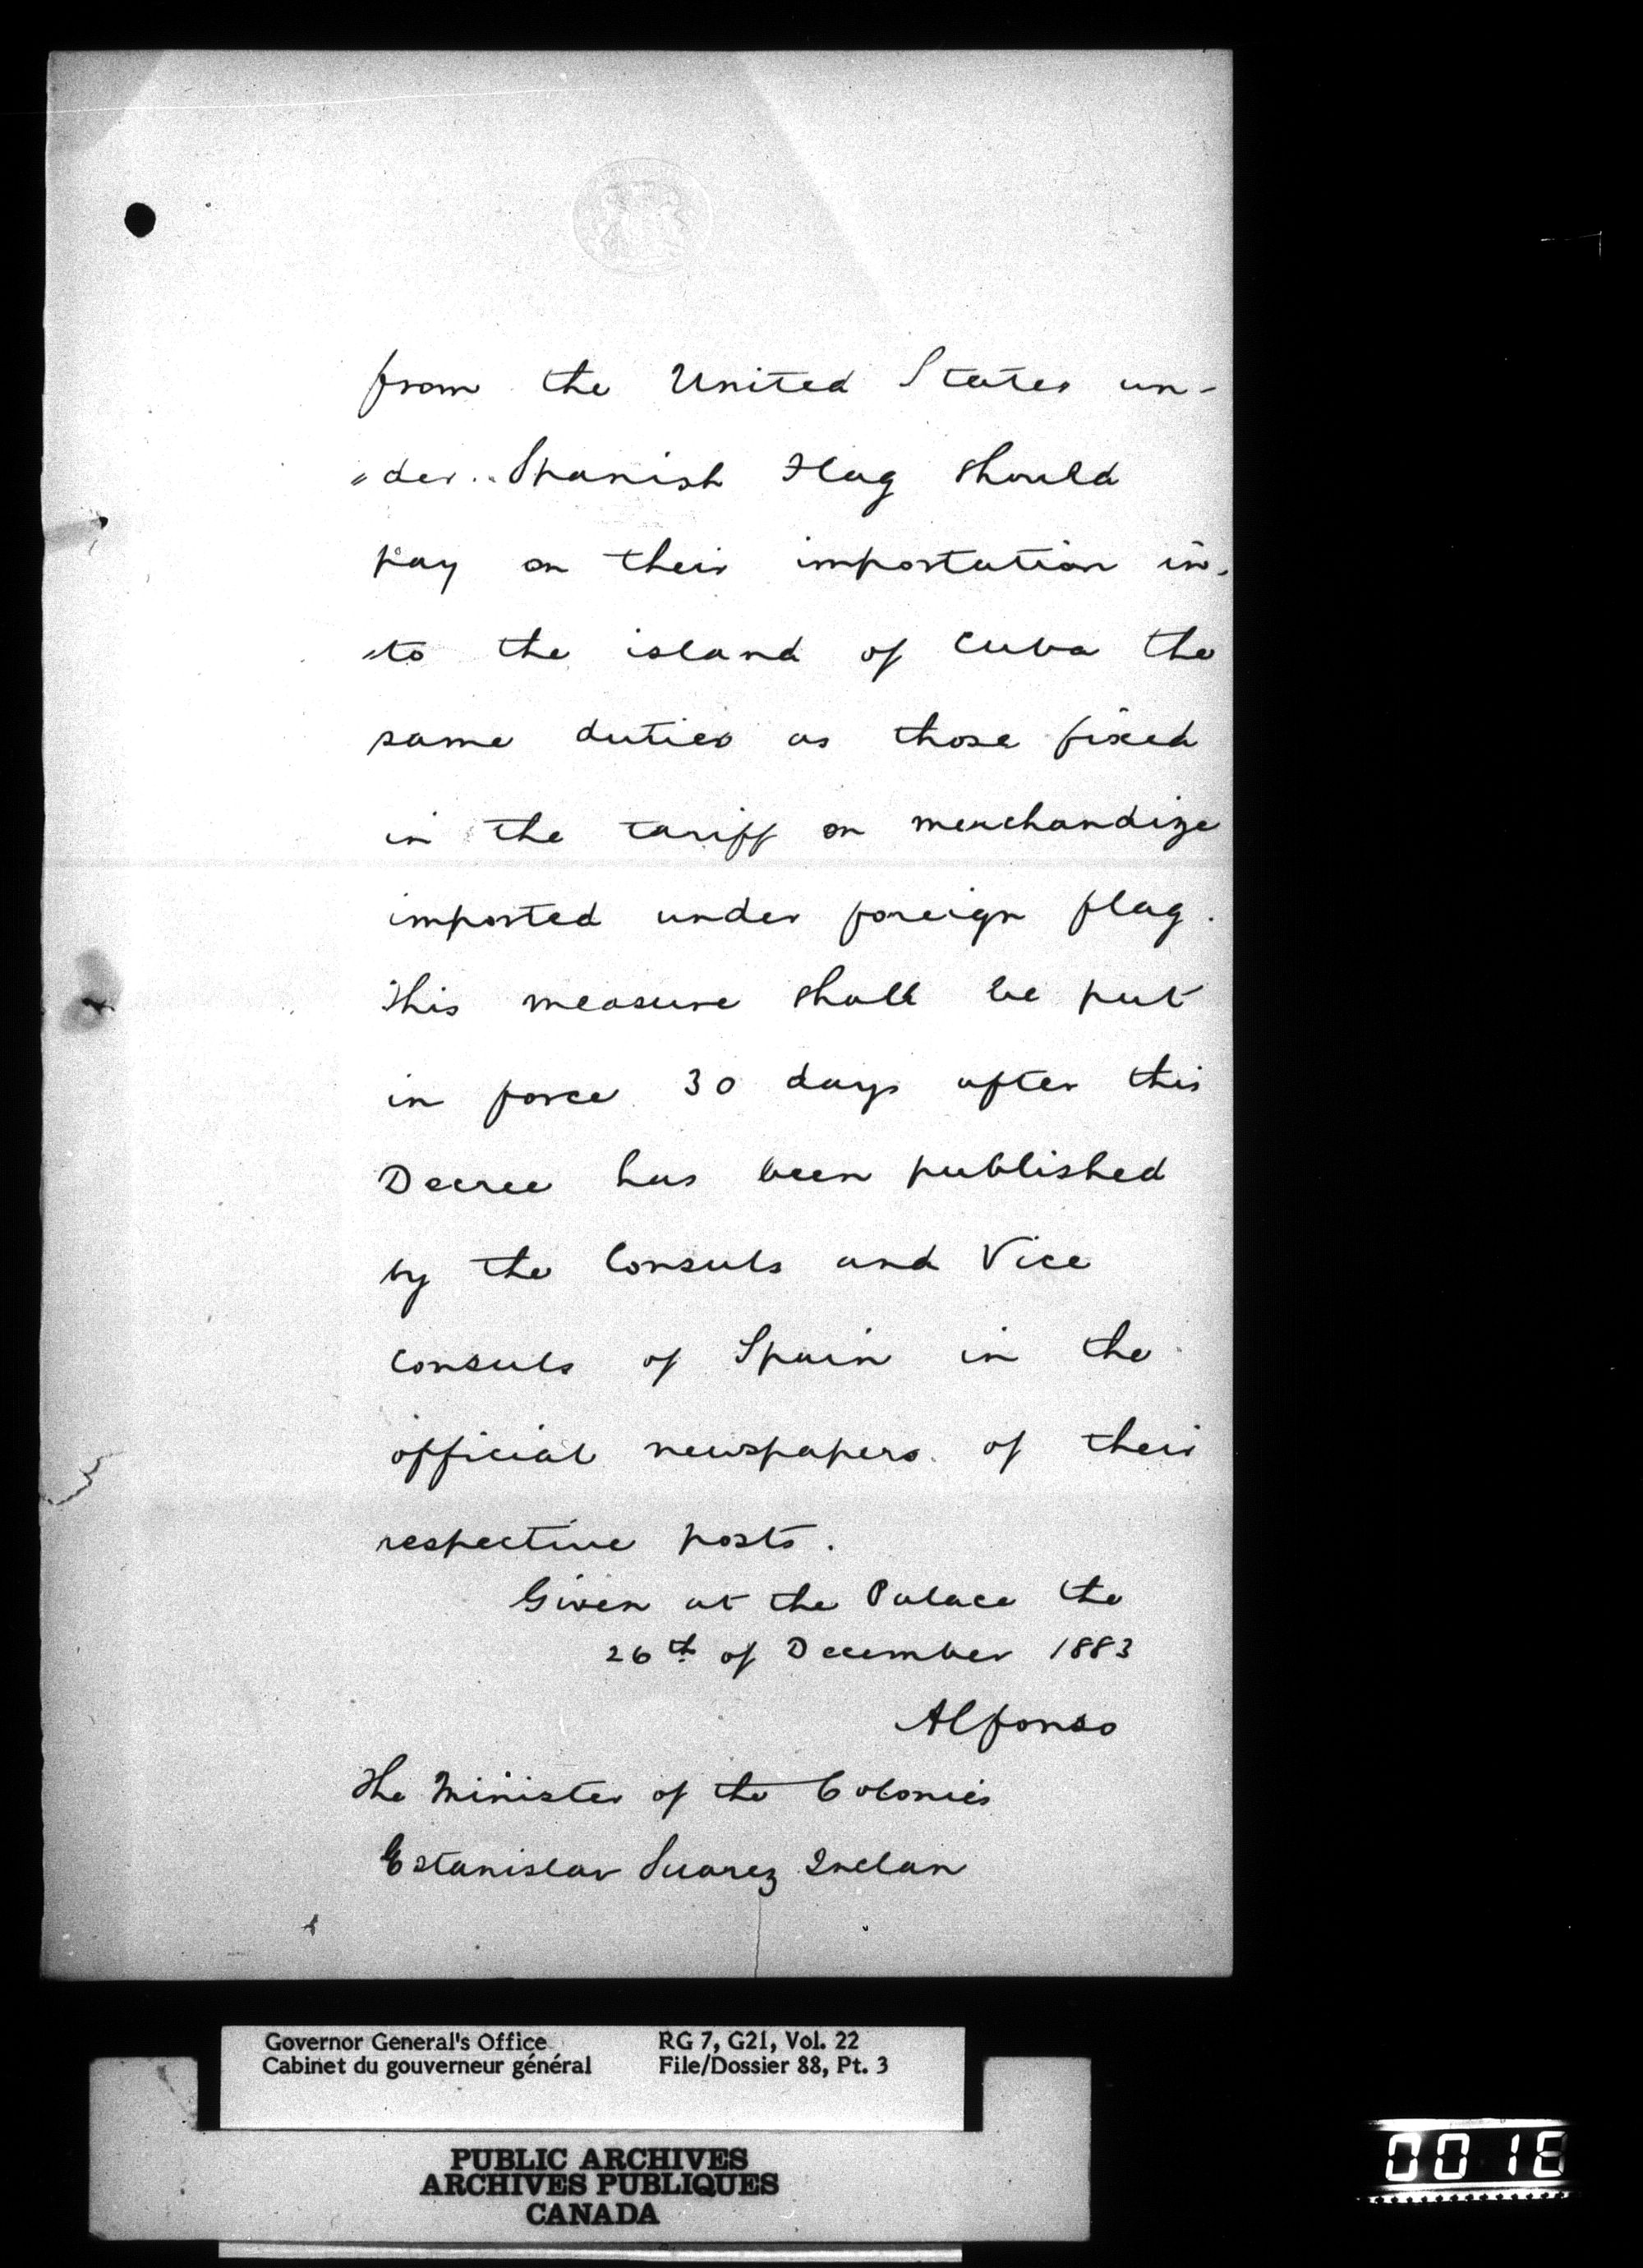 from the United States un-
"der Spanish Flag should
pay on their importation in-
"to the island of Cuba the
same duties as those fixed
in the tariff on merchandize
imported under foreign flag.
This measure shall be put
in force 30 days after this
Decree has been published
by the Consuls and Vice
Consuls of Spain in the
official newspapers of their
respective posts.
Given at the Palace the
26th of December 1883
Alfonso
The Minister of the Colonies
Estanislav Suarez Inclan
Governor General's Office RG 7, G21, Vol. 22
Cabinet du gouverneur général File/Dossier 88, Pt. 3
PUBLIC ARCHIVES
ARCHIVES PUBLIQUES
CANADA